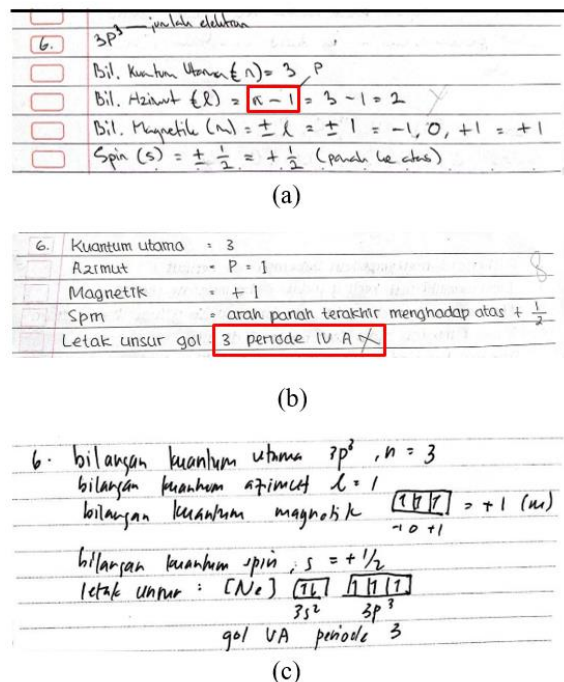 6. 3p³ — jumlah elektron
Bil. Kuantum Utama (n) = 3 p
Bil. Azimut (l) = n - 1 = 3 - 1 = 2
Bil. Magnetik (m) = ± l = ± 1 = -1, 0, +1 = +1
Spin (s) = ± 1/2 = + 1/2 (panah ke atas)
(a)
6. Kuantum utama = 3
Azimut = P = 1
Magnetik = +1
Spin = arah panah terakhir menghadap atas + 1/2
Letak unsur gol. 3 periode IV A
8
(b)
6. bilangan kuantum utama 3p³, n = 3
bilangan kuantum azimut l = 1
bilangan kuantum magnetik 1 1 1 = +1 (m)
-1 0 +1
bilangan kuantum spin, s = +1/2
letak unsur : [Ne] 1L 1 1 1
3s² 3p³
gol VA periode 3
(c)